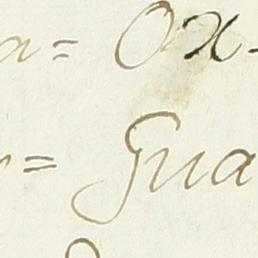 a= Ox-
= Gua